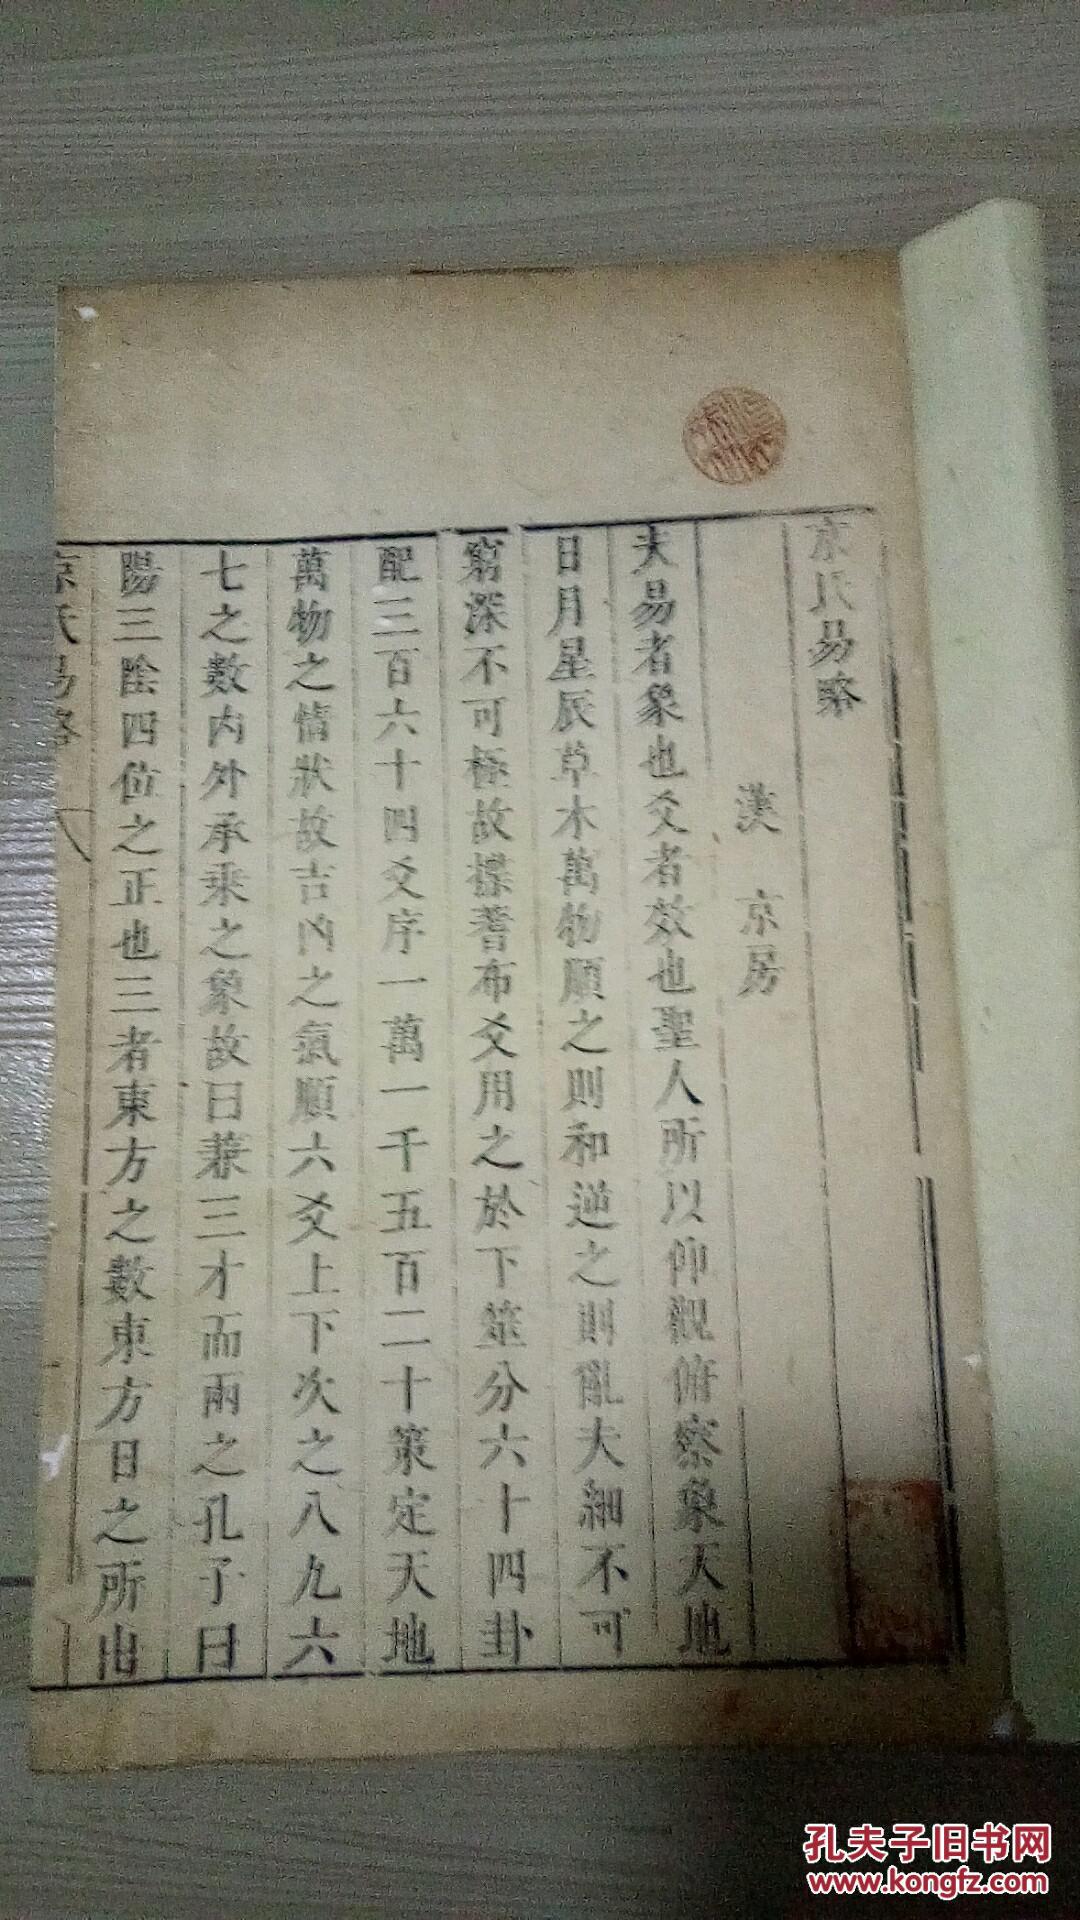 京氏易略
漢 京房
夫易者象也爻者效也聖人所以仰觀俯察象天地
日月星辰草木萬物順之則和逆之則亂夫細不可
窮深不可極故揲蓍布爻用之於下筮分六十四卦
配三百六十四爻序一萬一千五百二十策定天地
萬物之情狀故吉凶之氣順六爻上下次之八九六
七之數内外承乘之象故曰兼三才而兩之孔子曰
陽三陰四位之正也三者東方之數東方日之所出
京氏易略
孔夫子旧书网
www.kongfz.com